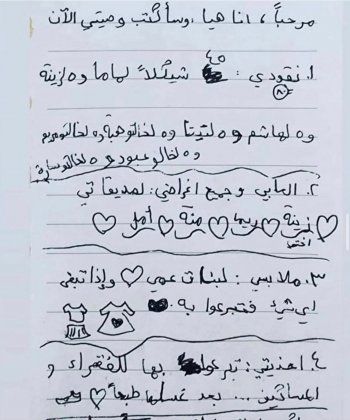 مرحباً، انا هيا، وسأكتب وصيتي الآن
١. نقودي: ٤٥ شيكلاً لماما و٥ لزينة
٨٠
و٥ لهاشم و٥ لتيتا و٥ لخالتو هبة و٥ لخالتو مريم
و٥ لخالو عبود و٥ لخالتو سارة
٢. العابي وجمع اغراضي: لصديقاتي
زينة ريما منة أمل
اختي
٣. ملابسي: لبنات عمي واذا تبقى
اي شيء فتبرعوا به.
٤. احذيتي: تبرعوا بها للفقراء و
المساكين ... بعد غسلها طبعاً